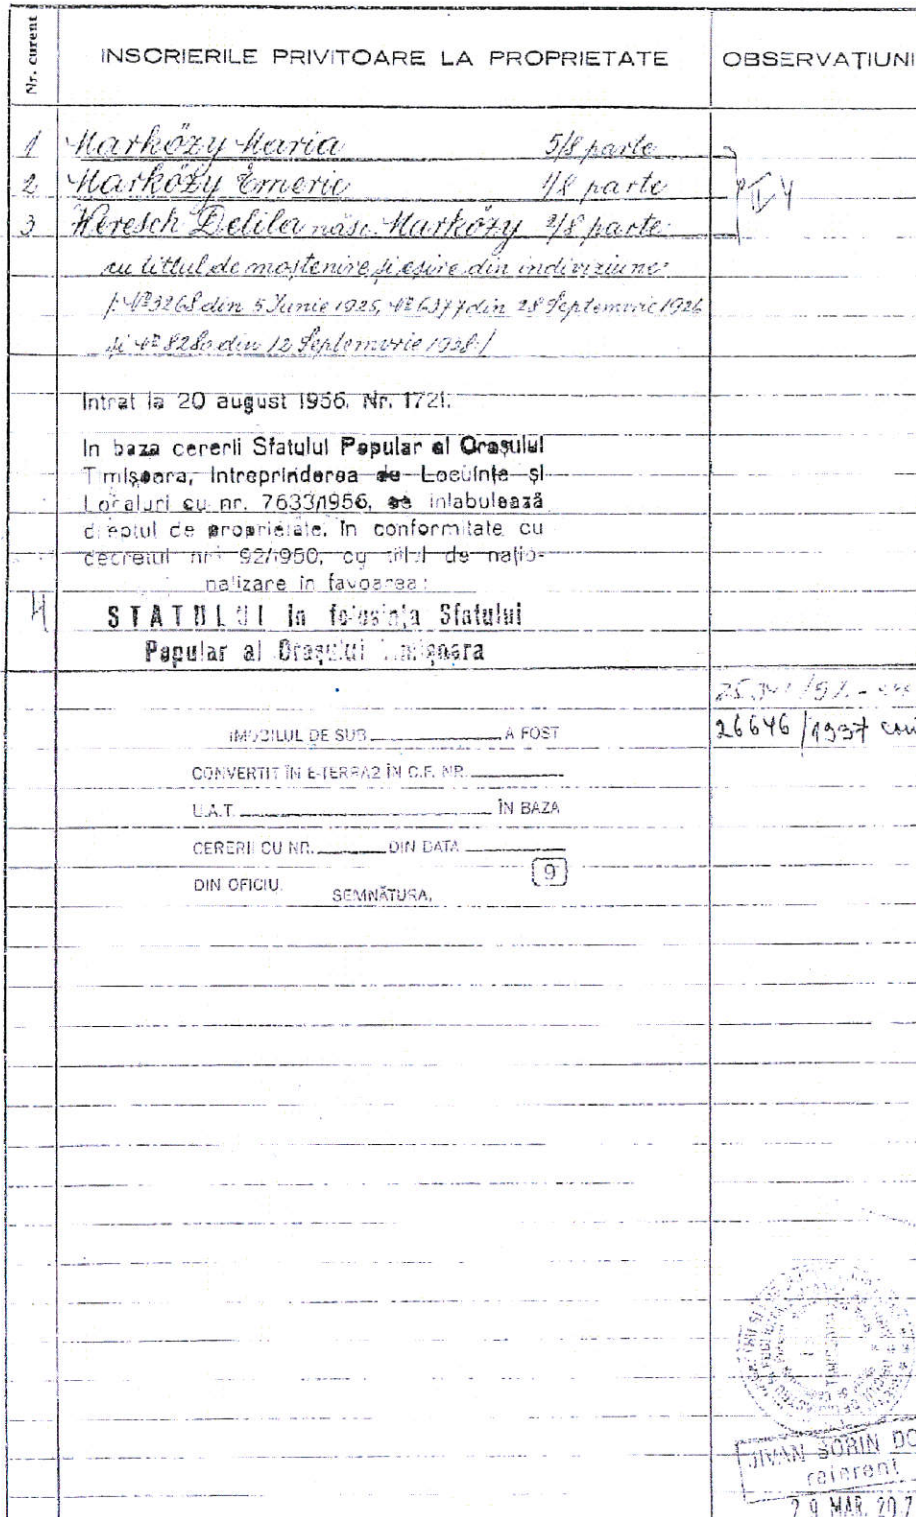 Nr. curent
INSCRIERILE PRIVITOARE LA PROPRIETATE
OBSERVAȚIUNI
1 Markózy Maria 5/8 parte
2 Markózy Emeric 1/8 parte
3 Heresch Delila născ. Markózy 2/8 parte
cu titlul de moștenire și eșire din indiviziune
/: Nº 3268 din 5 Iunie 1925, Nº 6377 din 28 Septemvrie 1926
și Nº 8280 din 12 Septemvrie 1928 /
Intrat la 20 august 1956. Nr. 1721.
In baza cererii Sfatului Popular al Orașului
Timișoara, Intreprinderea de Locuințe și
Localuri cu nr. 7633/1956, se intabulează
dreptul de proprietate, în conformitate cu
decretul nr. 92/1950, cu titlul de națio-
nalizare in favoarea:
4 STATULUI in folosința Sfatului
Popular al Orașului Timișoara
26646/1997
IMOBILUL DE SUB A FOST
CONVERTIT ÎN E-TERRA2 ÎN C.F. NR.
U.A.T. ÎN BAZA
CERERII CU NR. DIN DATA
DIN OFICIU. 9
SEMNĂTURA,
JIVAN SORIN
referent
29 MAR. 20